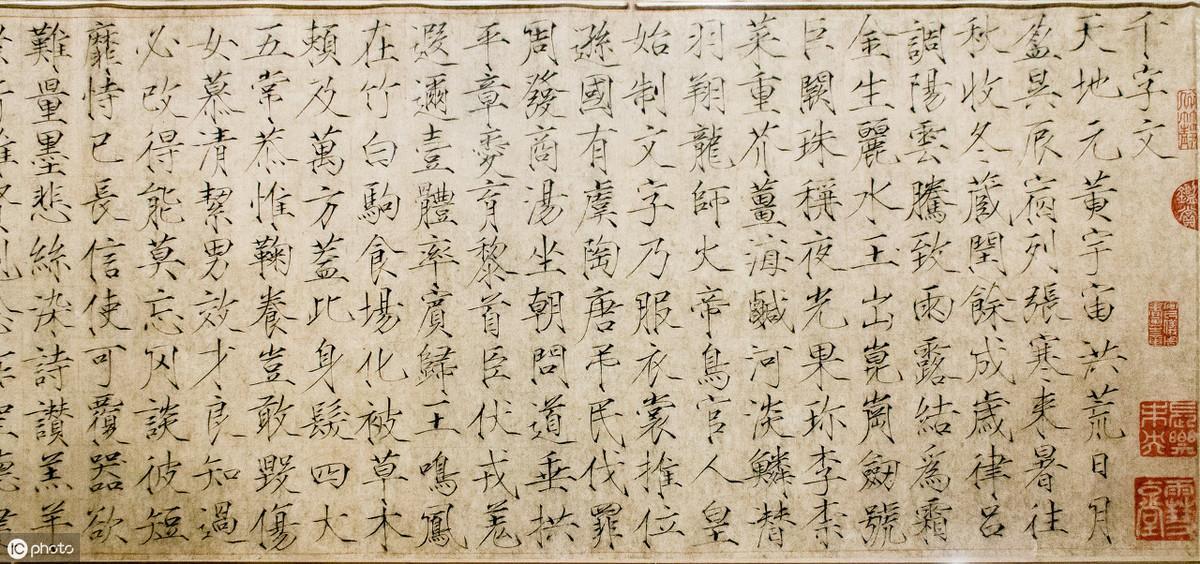 千字文
天地元黃宇宙洪荒日月
盈昃辰宿列張寒来暑往
秋收冬蔵閏餘成歳律呂
調陽雲騰致雨露結爲霜
金生麗水玉出崑崗劒號
巨闕珠稱夜光果珎李柰
菜重芥薑海鹹河淡鱗潛
羽翔龍師火帝鳥官人皇
始制文字乃服衣裳推位
遜國有虞陶唐弔民伐罪
周發商湯坐朝問道垂拱
平章愛育黎首臣伏戎羌
遐邇壹體率賓歸王鳴鳳
在竹白駒食場化被草木
頼及萬方蓋此身髮四大
五常恭惟鞠養豈敢毀傷
女慕清絜男效才良知過
必改得能莫忘罔談彼短
靡恃己長信使可覆器欲
難量墨悲絲染詩讃羔羊
iC photo